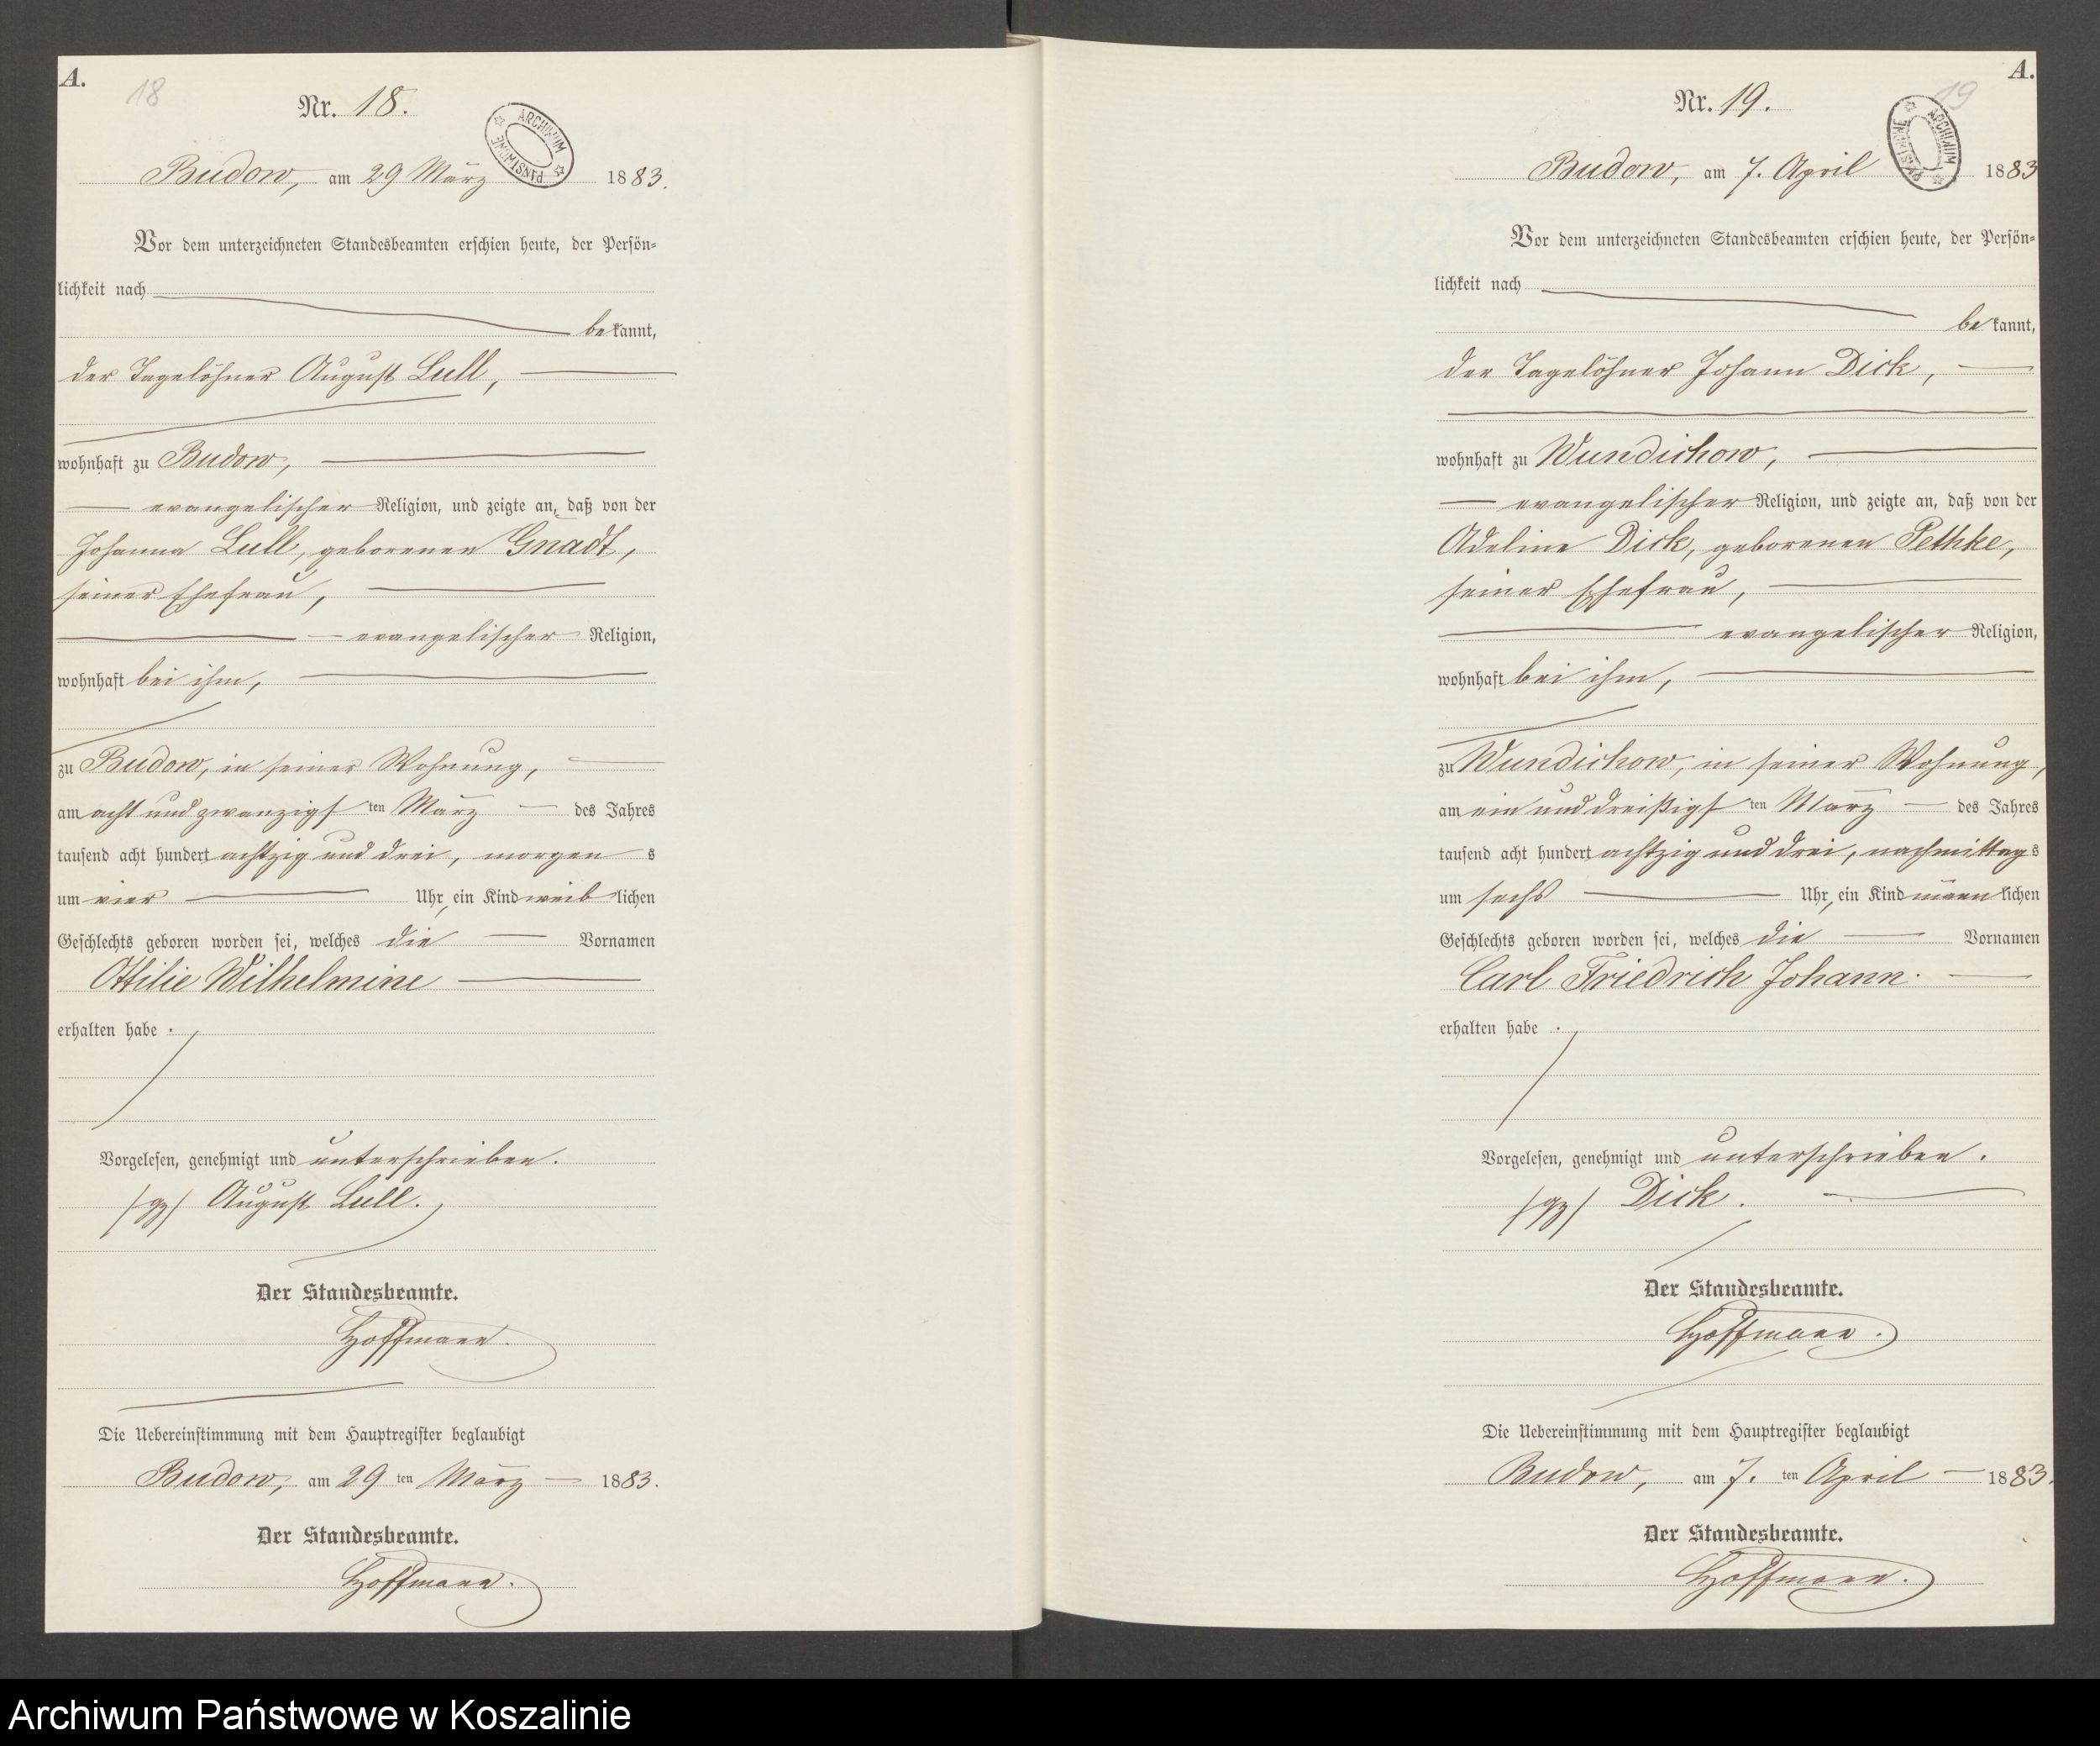 A.
18
Nr. 18.
ARCHIWUM PAŃSTWOWE
Budow, am 29 März 1883.
Vor dem unterzeichneten Standesbeamten erschien heute, der Persön-
lichkeit nach
bekannt,
der Tagelöhner August Lull,
wohnhaft zu Budow,
evangelischer Religion, und zeigte an, daß von der
Johanna Lull, geborenen Gnadt,
seiner Ehefrau,
evangelischer Religion,
wohnhaft bei ihm,
zu Budow, in seiner Wohnung,
am acht und zwanzigsten März des Jahres
tausend acht hundert achtzig und drei, morgens
um vier Uhr, ein Kind weiblichen
Geschlechts geboren worden sei, welches die Vornamen
Ottilie Wilhelmine
erhalten habe.
Vorgelesen, genehmigt und unterschrieben.
/gz/ August Lull.
Der Standesbeamte.
Hoffmann.
Die Uebereinstimmung mit dem Hauptregister beglaubigt
Budow, am 29ten März 1883.
Der Standesbeamte.
Hoffmann.
A.
19
Nr. 19.
ARCHIWUM PAŃSTWOWE
Budow, am 7. April 1883
Vor dem unterzeichneten Standesbeamten erschien heute, der Persön-
lichkeit nach
bekannt,
der Tagelöhner Johann Dick,
wohnhaft zu Wundichow,
evangelischer Religion, und zeigte an, daß von der
Adeline Dick, geborenen Pethke,
seiner Ehefrau,
evangelischer Religion,
wohnhaft bei ihm,
zu Wundichow, in seiner Wohnung,
am ein und dreißigsten März des Jahres
tausend acht hundert achtzig und drei, nachmittags
um sechs Uhr, ein Kind männlichen
Geschlechts geboren worden sei, welches die Vornamen
Carl Friedrich Johann.
erhalten habe.
Vorgelesen, genehmigt und unterschrieben.
/gz/ Dick.
Der Standesbeamte.
Hoffmann.
Die Uebereinstimmung mit dem Hauptregister beglaubigt
Budow, am 7.ten April 1883.
Der Standesbeamte.
Hoffmann.
Archiwum Państwowe w Koszalinie